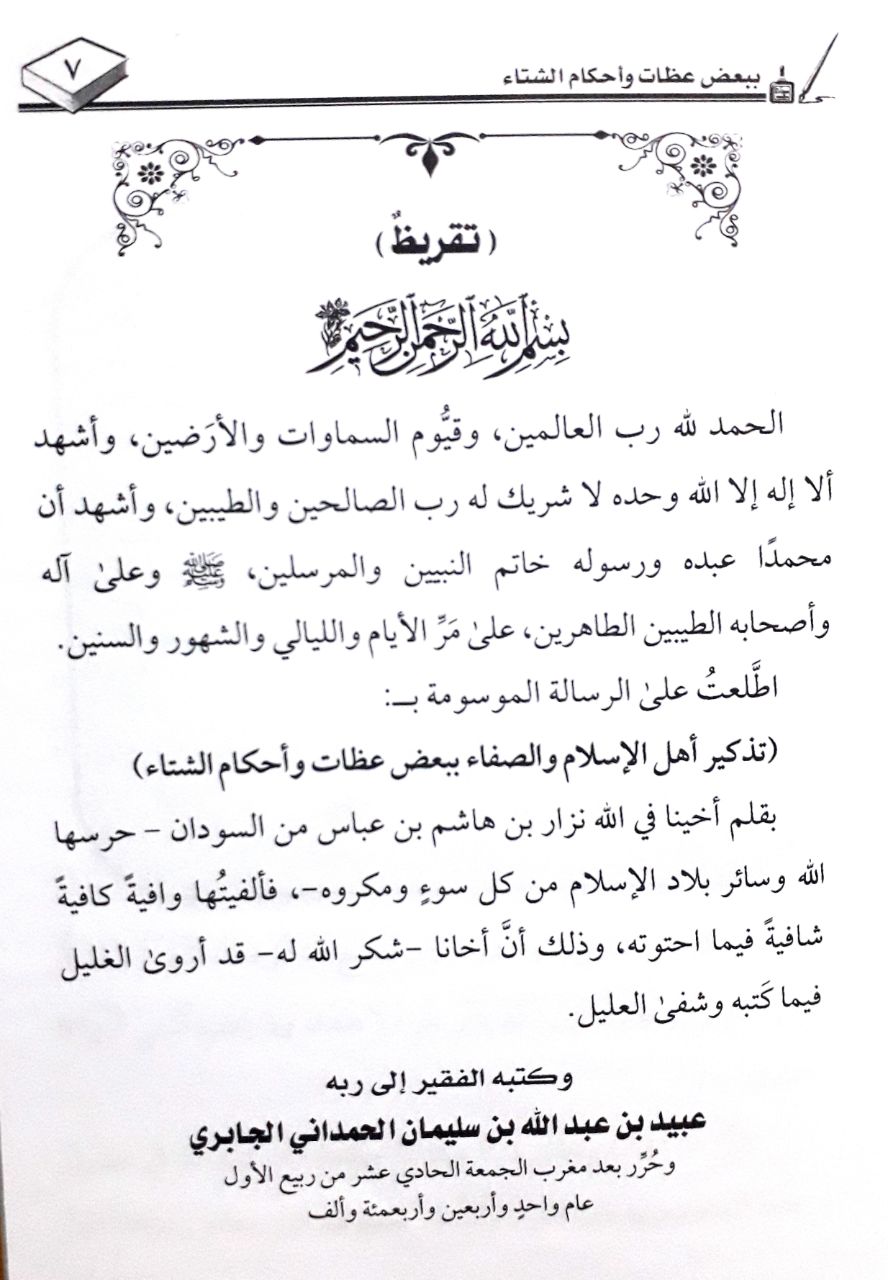 ببعض عظات وأحكام الشتاء
٧
(تقريظٌ)
بِسْمِ ٱللَّهِ ٱلرَّحْمَٰنِ ٱلرَّحِيمِ
الحمد لله رب العالمين، وقيُّوم السماوات والأرَضين، وأشهد
ألا إله إلا الله وحده لا شريك له رب الصالحين والطيبين، وأشهد أن
محمدًا عبده ورسوله خاتم النبيين والمرسلين، ﷺ وعلىٰ آله
وأصحابه الطيبين الطاهرين، علىٰ مَرِّ الأيام والليالي والشهور والسنين.
اطَّلعتُ علىٰ الرسالة الموسومة بـ:
(تذكير أهل الإسلام والصفاء ببعض عظات وأحكام الشتاء)
بقلم أخينا في الله نزار بن هاشم بن عباس من السودان – حرسها
الله وسائر بلاد الإسلام من كل سوءٍ ومكروه–، فألفيتُها وافيةً كافيةً
شافيةً فيما احتوته، وذلك أنَّ أخانا –شكر الله له– قد أروىٰ الغليل
فيما كَتبه وشفىٰ العليل.
وكتبه الفقير إلى ربه
عبيد بن عبد الله بن سليمان الحمداني الجابري
وحُرِّر بعد مغرب الجمعة الحادي عشر من ربيع الأول
عام واحدٍ وأربعين وأربعمئة وألف